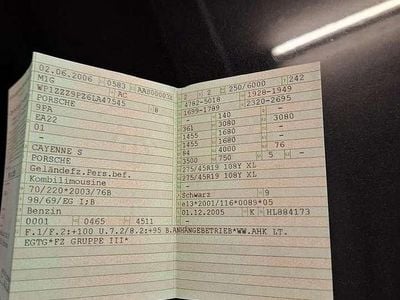 02.06.2006 0583 AA8000005
M1G AC
WP1ZZZ9PZ6LA47545 8
PORSCHE
9PA
EA22
01
-
CAYENNE S
PORSCHE
Geländefz.Pers.bef.
Kombilimousine
70/220*2003/76B
98/69/EG I;B
Benzin
0001 0465 4511
F.1/F.2:+100 U.7.2/8.2:+95 B.ANHÄNGEBETRIEB*WW.AHK LT.
EGTG*FZ GRUPPE III*
2 2 250/6000 242
4782-5018 1928-1949
1699-1789 2320-2695
- 140 -
361 3080 3080
1455 1680 -
1455 1680 -
84 4000 76
3500 750 5 -
275/45R19 108Y XL
275/45R19 108Y XL
-
Schwarz 9
e13*2001/116*0089*05
01.12.2005 K HL884173
- -